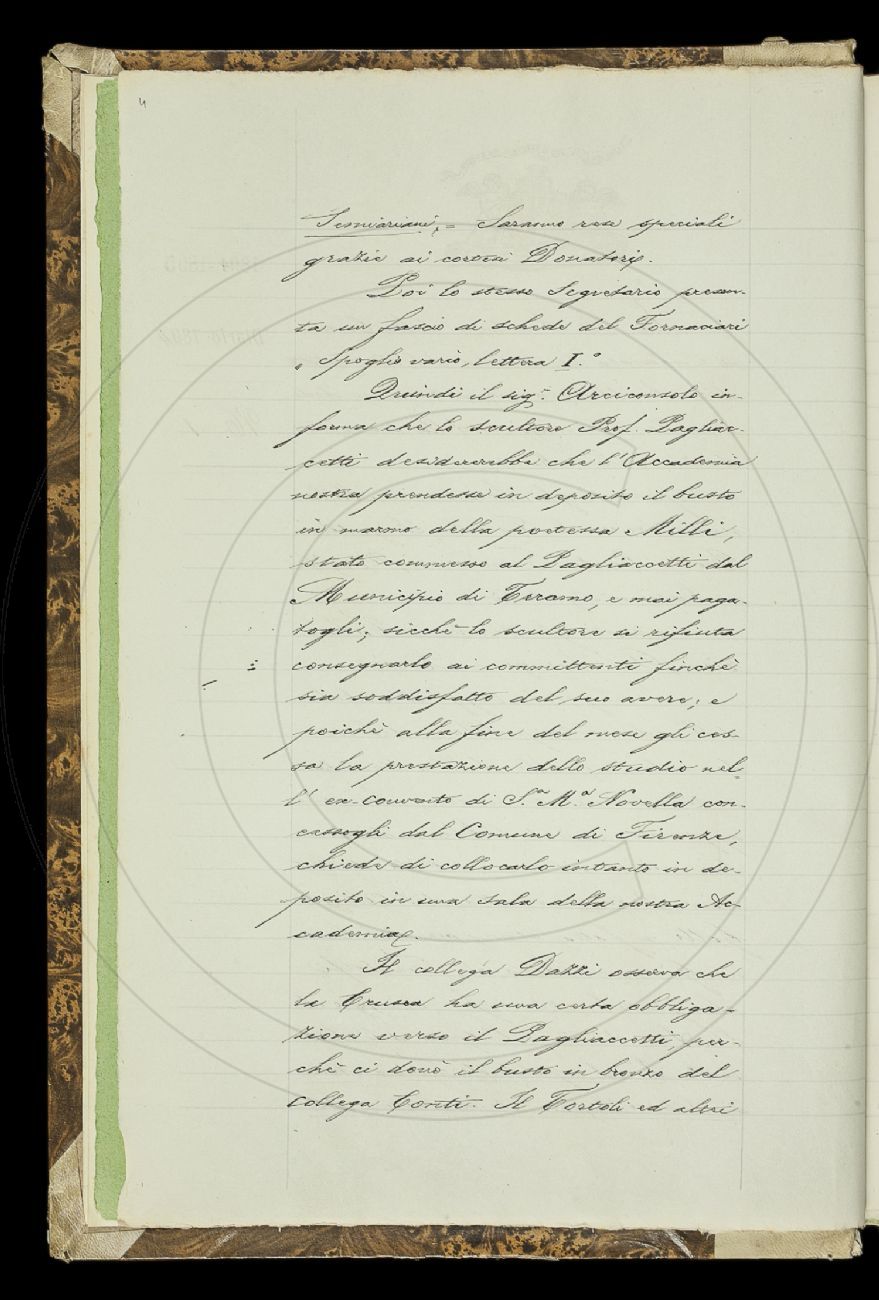 4
Semiariani. = Saranno rese speciali
grazie ai cortesi Donatori.
Poi lo stesso Segretario presen-
ta un fascio di schede del Fornaciari
„ Spoglio vario, lettera I.°
Quindi il sig.r Arciconsolo in-
forma che lo scultore Prof. Pagliac-
cetti desidererebbe che l'Accademia
nostra prendesse in deposito il busto
in marmo della poetessa Milli,
stato commesso al Pagliaccetti dal
Municipio di Teramo, e mai paga-
togli; sicchè lo scultore si rifiuta
consegnarlo ai committenti finchè
sia soddisfatto del suo avere; e
poichè alla fine del mese gli ces-
sa la prestazione dello studio nel-
l' ex-convento di S.a M.a Novella con-
cessogli dal Comune di Firenze,
chiede di collocarlo intanto in de-
posito in una sala della nostra Ac-
cademia.
Il collega Dazzi osserva che
la Crusca ha una certa obbliga-
zione verso il Pagliaccetti, per-
chè ci donò il busto in bronzo del
collega Conti. Il Tortoli ed altri